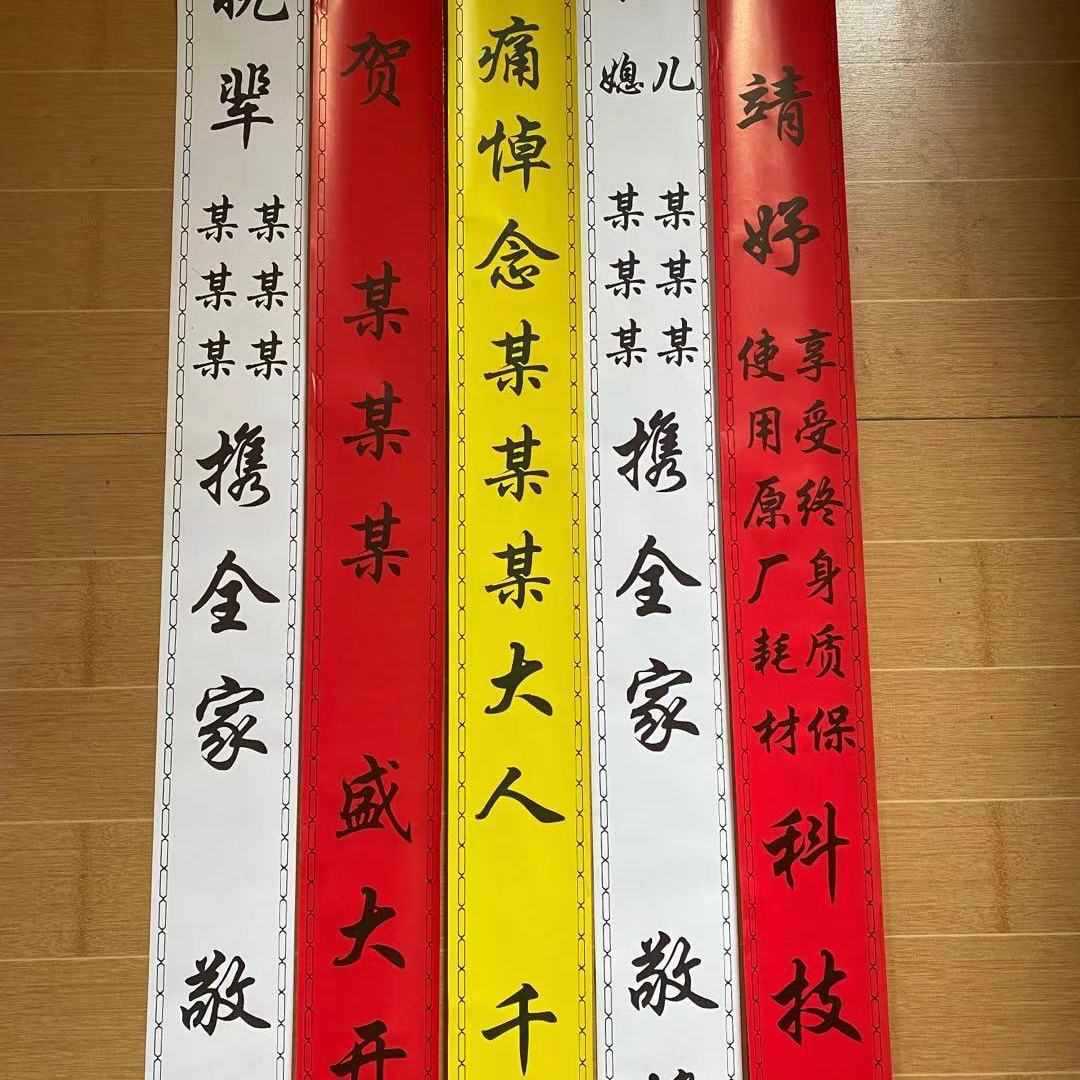 晚辈
某某某
某某某
携全家 敬
贺 某某某 盛大开
痛悼念某某某大人 千
儿
媳
某某某
某某某
携全家 敬
靖妤
使用原厂耗材
享受终身质保
科技